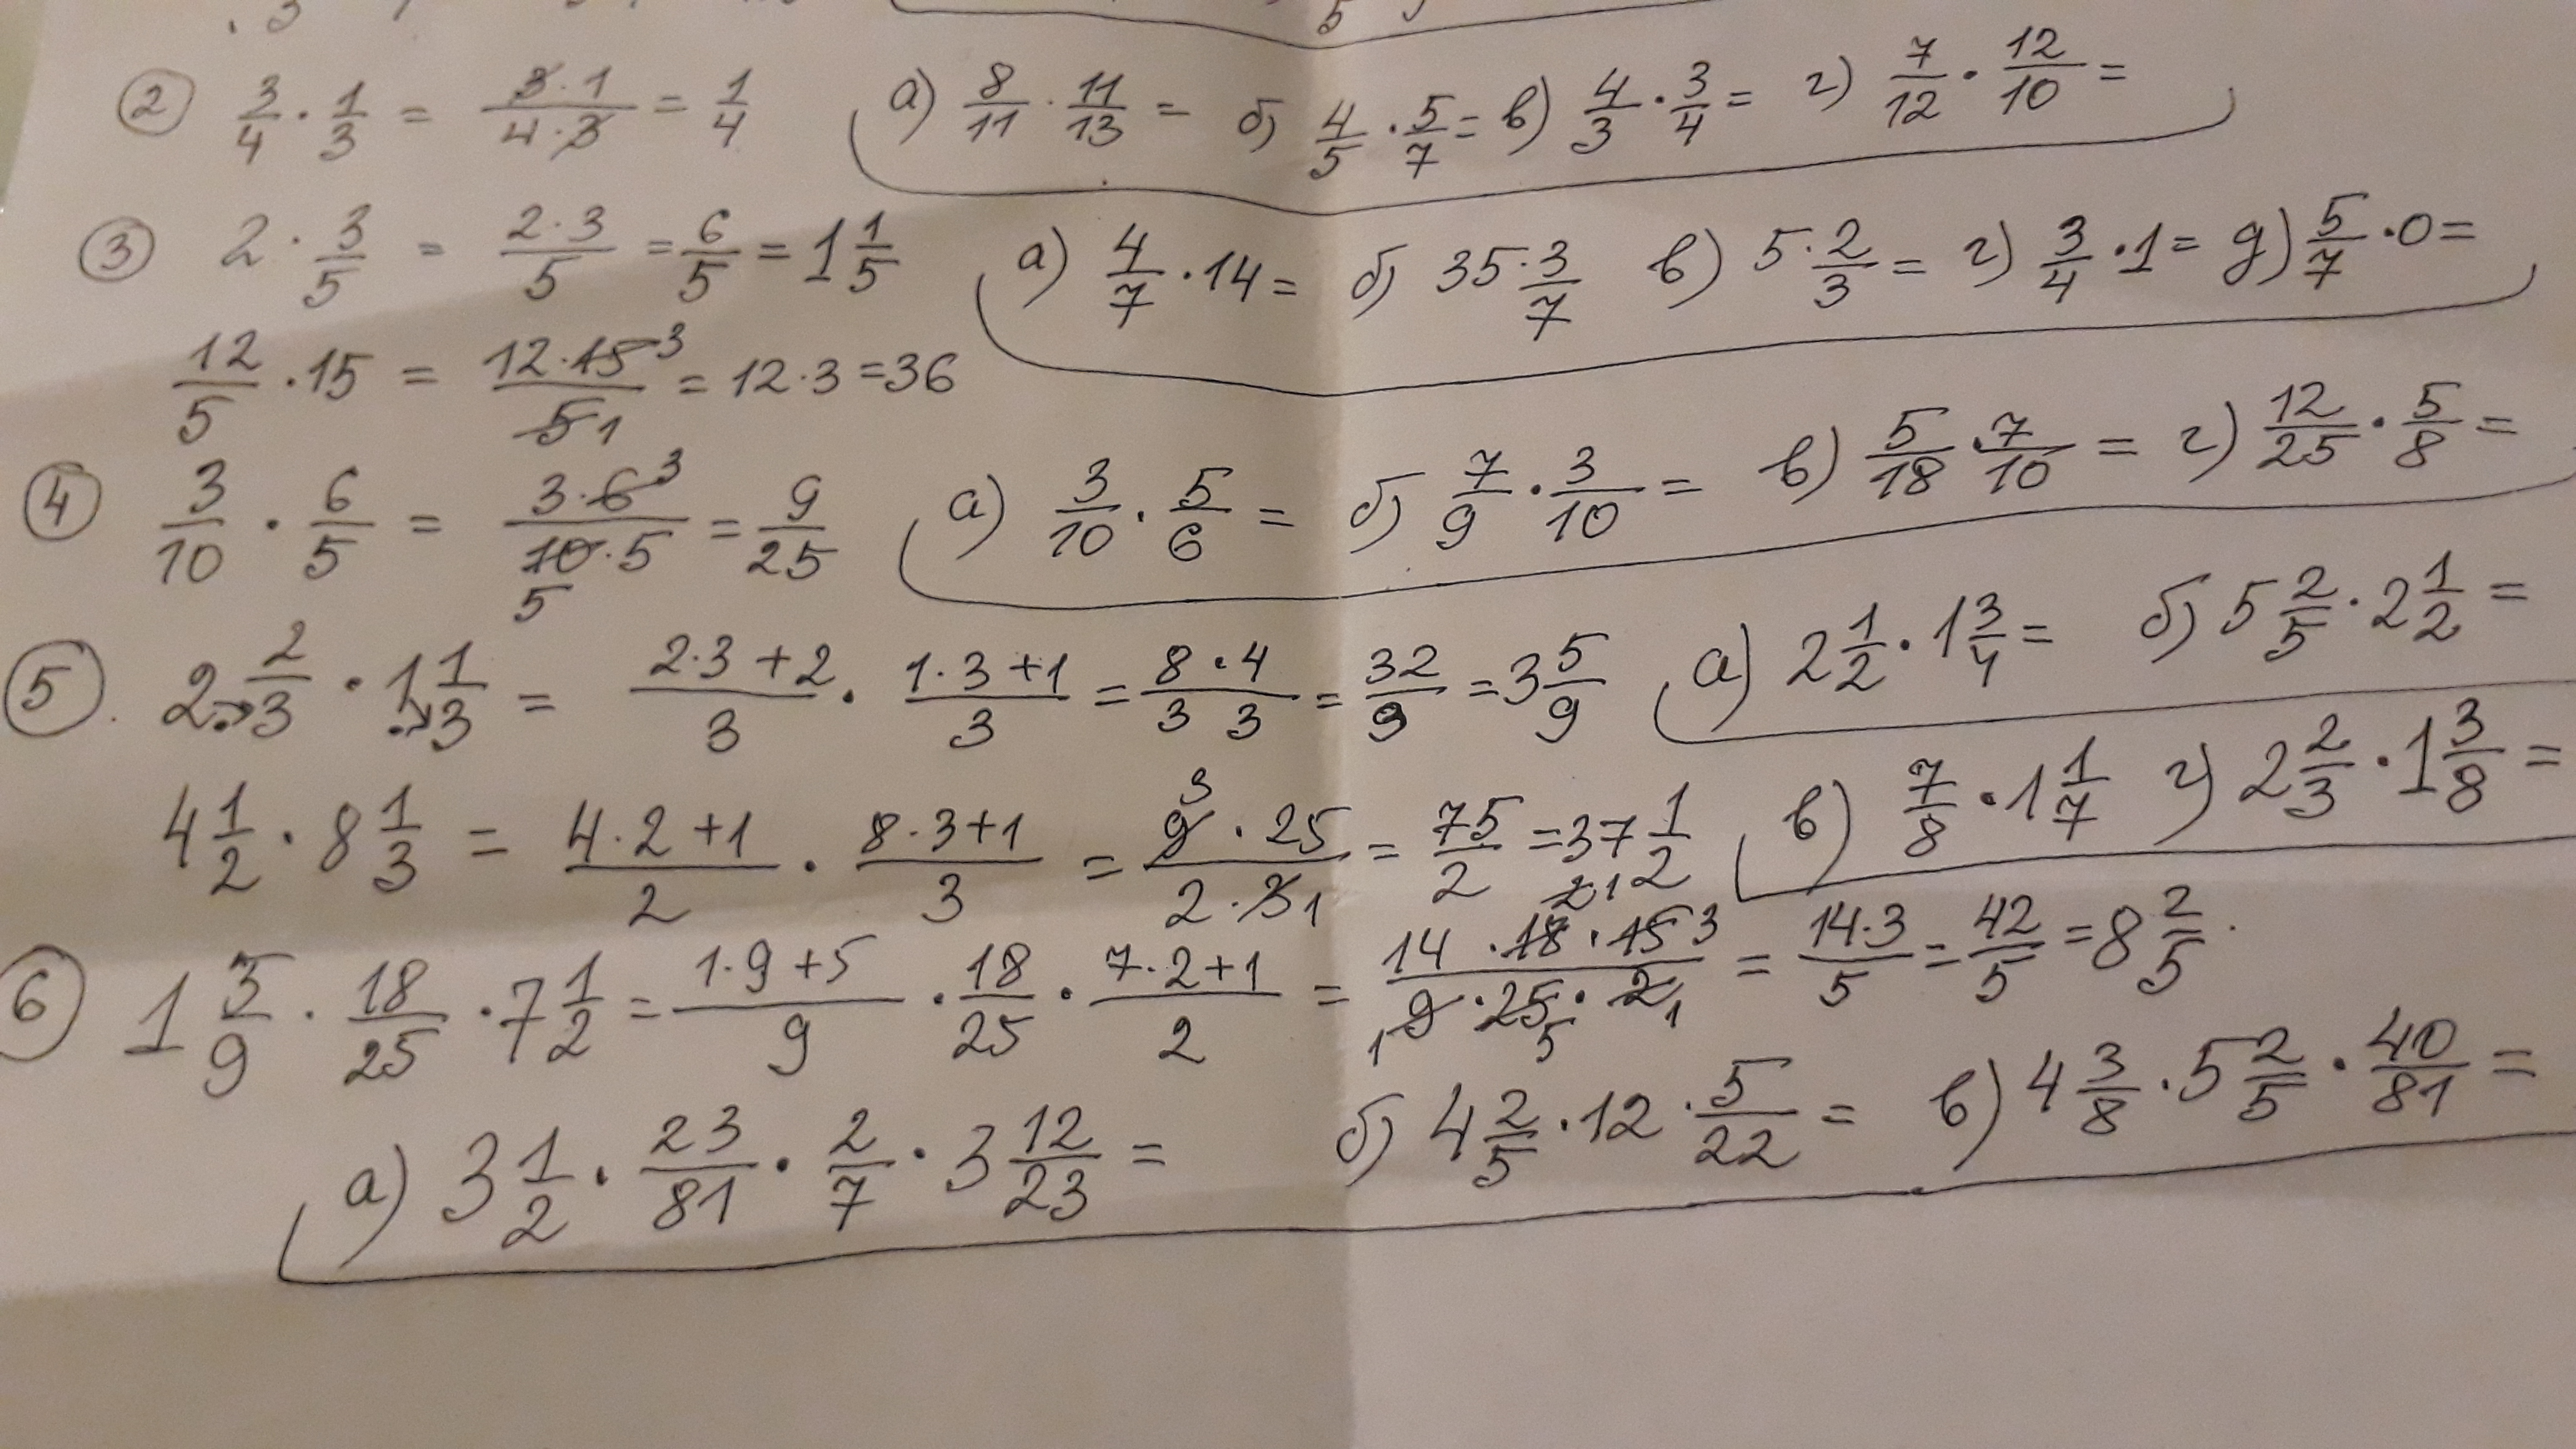 ② 3/4 · 1/3 = 3·1/4·3 = 1/4 а) 8/11 · 11/13 = б) 4/5 · 5/7 = в) 4/3 · 3/4 = г) 7/12 · 12/10 =
③ 2 · 3/5 = 2·3/5 = 6/5 = 1 1/5 а) 4/7 · 14 = б) 35 · 3/7 в) 5 · 2/3 = г) 3/4 · 1 = д) 5/7 · 0 =
12/5 · 15 = 12·15 3/5 1 = 12·3 = 36
④ 3/10 · 6/5 = 3·6 3/10·5 5 = 9/25 а) 3/10 · 5/6 = б) 7/9 · 3/10 = в) 5/18 · 7/10 = г) 12/25 · 5/8 =
⑤ 2 2/3 · 1 1/3 = 2·3+2/3 · 1·3+1/3 = 8·4/3 3 = 32/9 = 3 5/9 а) 2 1/2 · 1 3/4 = б) 5 2/5 · 2 1/2 =
4 1/2 · 8 1/3 = 4·2+1/2 · 8·3+1/3 = 3 9·25/2·3 1 = 75/2 = 37 1/2 в) 7/8 · 1 1/7 г) 2 2/3 · 1 3/8 =
⑥ 1 5/9 · 18/25 · 7 1/2 = 1·9+5/9 · 18/25 · 7·2+1/2 = 14 · 18 2 1 · 15 3/1 9 · 25 5 · 2 1 = 14·3/5 = 42/5 = 8 2/5 .
а) 3 1/2 · 23/81 · 2/7 · 3 12/23 = б) 4 2/5 · 12 · 5/22 = в) 4 3/8 · 5 2/5 · 40/81 =